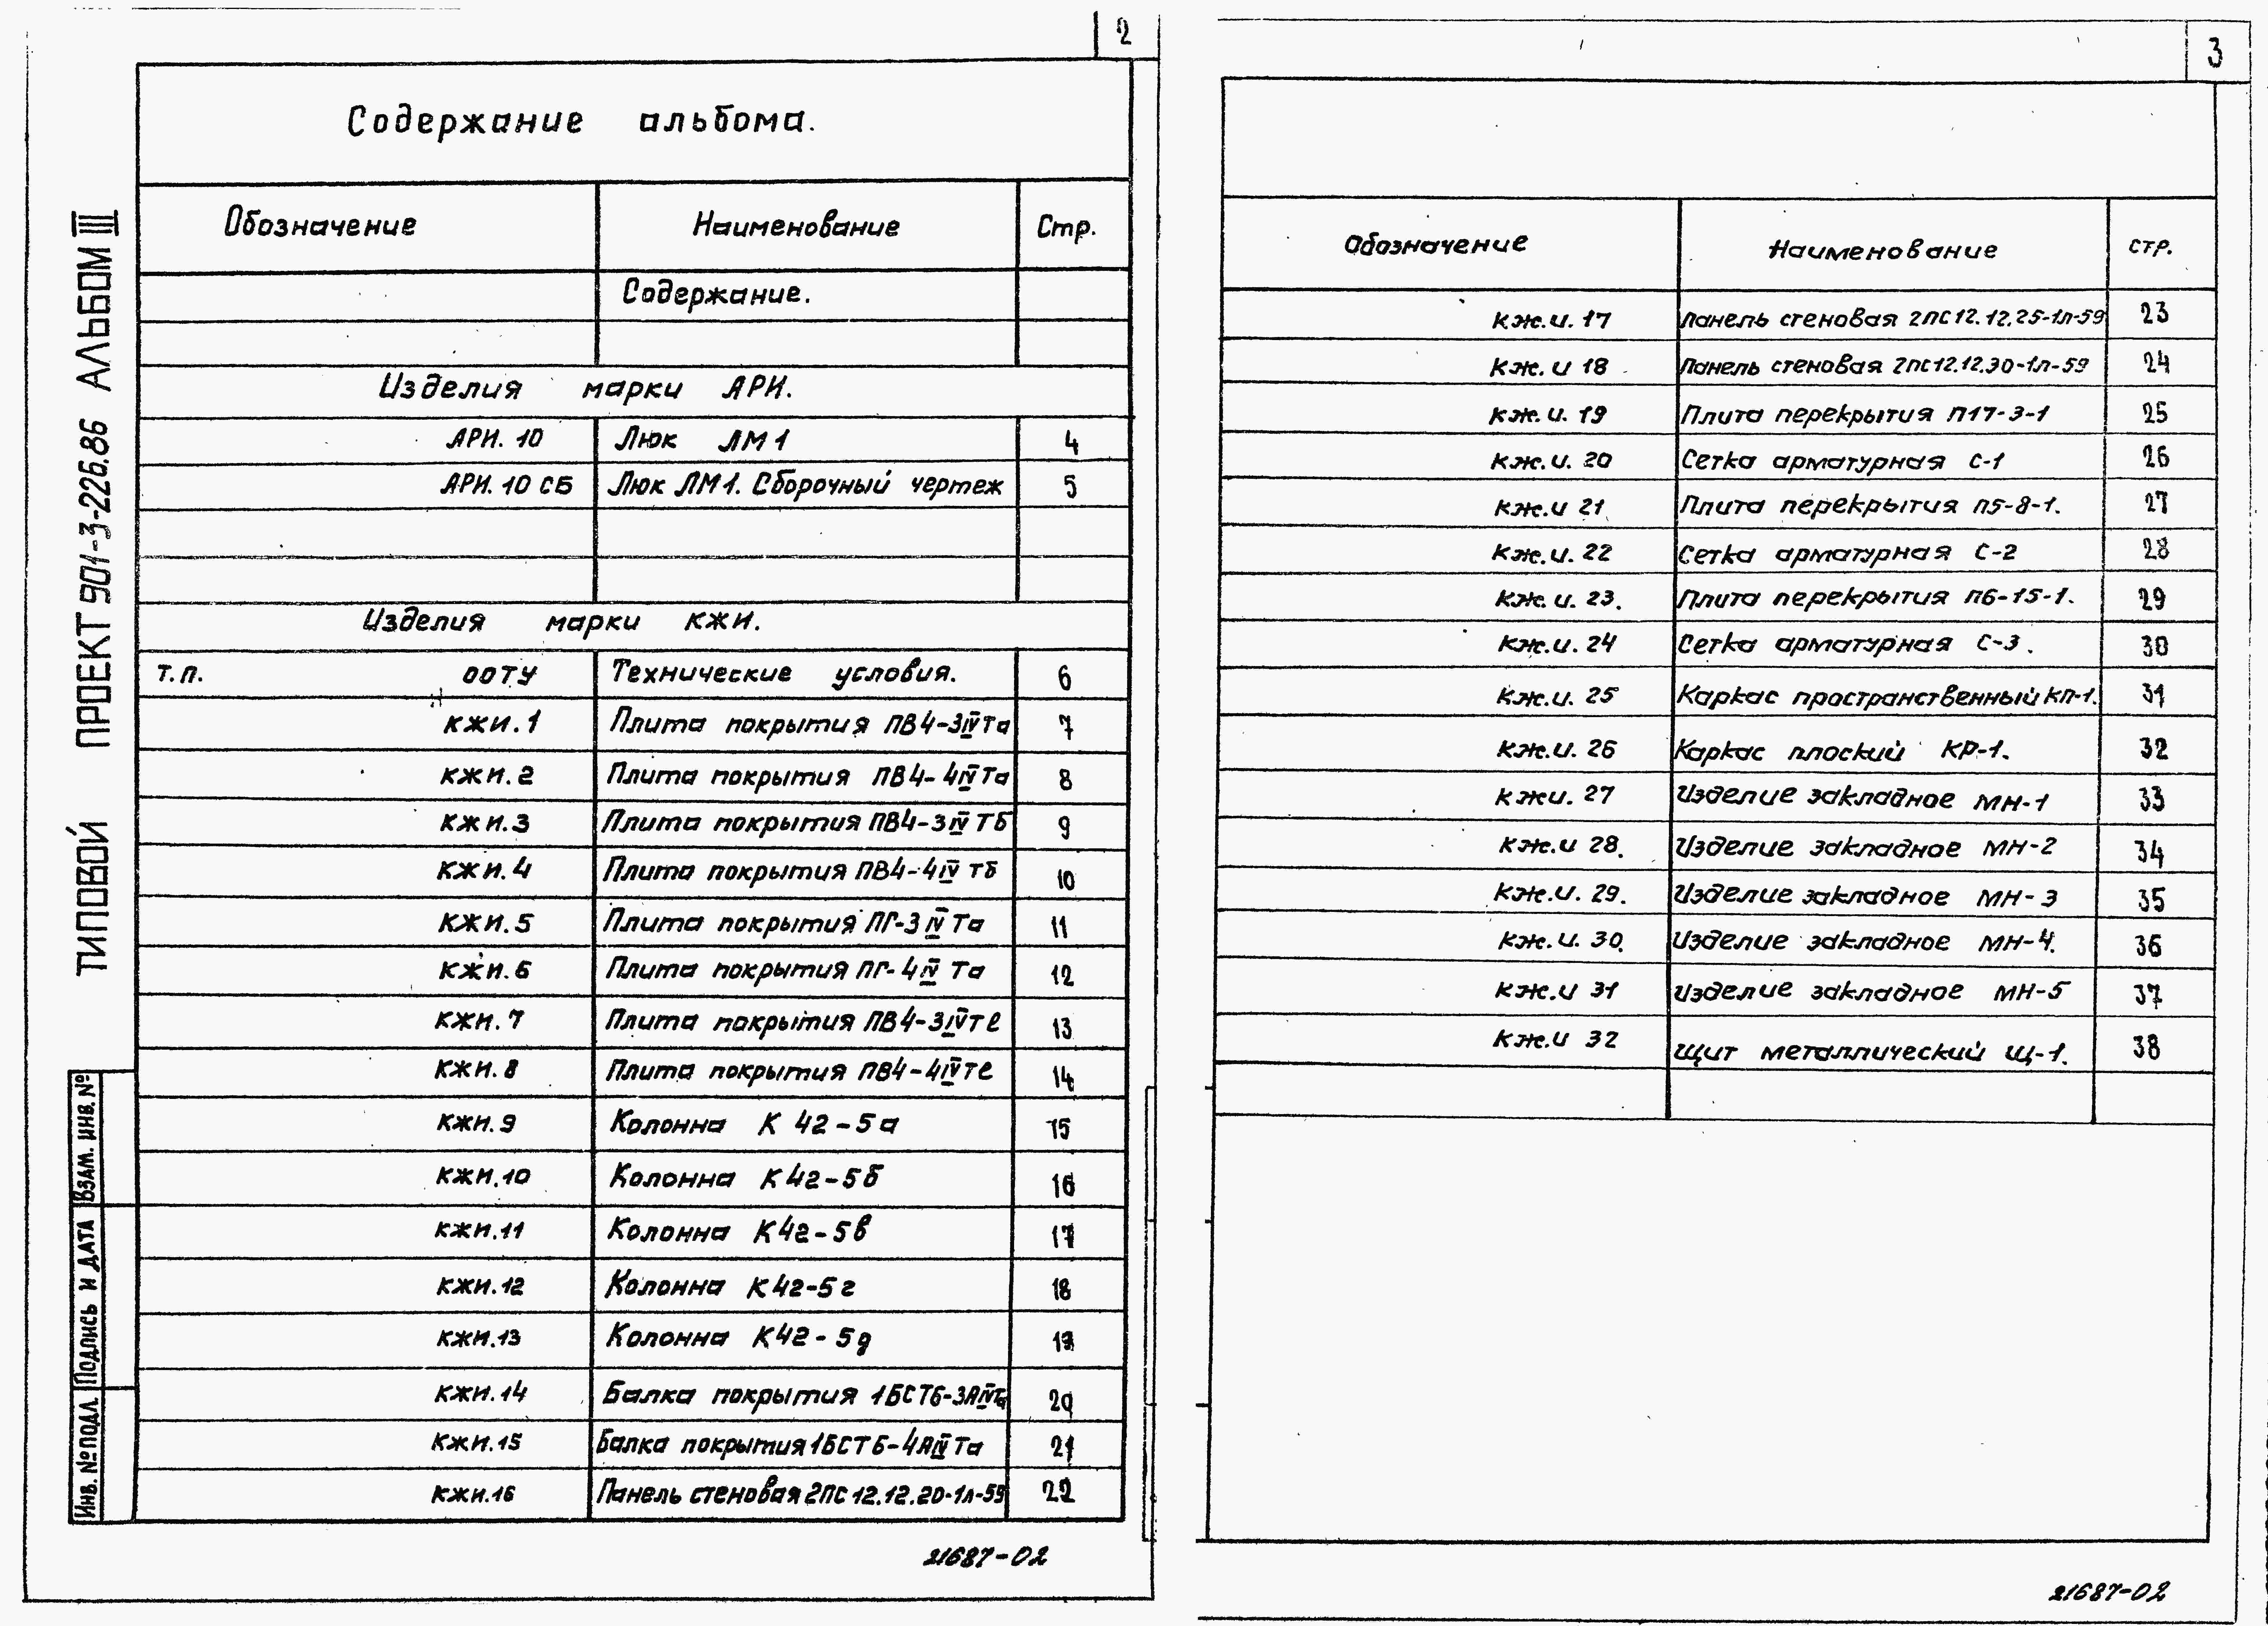 2
Содержание альбома.
Обозначение Наименование Стр.
Содержание.
Изделия марки АРИ.
АРИ. 10 Люк ЛМ1 4
АРИ. 10 СБ Люк ЛМ1. Сборочный чертеж 5
Изделия марки КЖИ.
т.п. ООТУ Технические условия. 6
КЖИ.1 Плита покрытия ПВ4-3IVТа 7
КЖИ.2 Плита покрытия ПВ4-4IVТа 8
КЖИ.3 Плита покрытия ПВ4-3IVТб 9
КЖИ.4 Плита покрытия ПВ4-4IVТб 10
КЖИ.5 Плита покрытия ПГ-3IVТа 11
КЖИ.6 Плита покрытия ПГ-4IVТа 12
КЖИ.7 Плита покрытия ПВ4-3IVТе 13
КЖИ.8 Плита покрытия ПВ4-4IVТе 14
КЖИ.9 Колонна К 42-5а 15
КЖИ.10 Колонна К42-5б 16
КЖИ.11 Колонна К42-5в 17
КЖИ.12 Колонна К42-5г 18
КЖИ.13 Колонна К42-5д 19
КЖИ.14 Балка покрытия 1БСТ6-3АIVТа 20
КЖИ.15 Балка покрытия 1БСТ6-4АIVТа 21
КЖИ.16 Панель стеновая 2ПС 12.12.20-1л-59 22
21687-02
ТИПОВОЙ ПРОЕКТ 901-3-226.86 АЛЬБОМ III
Инв. № подл. Подпись и дата Взам. инв. №
3
Обозначение Наименование стр.
кж.и. 17 Панель стеновая 2ПС12.12.25-1л-59 23
кж.и 18 Панель стеновая 2пс12.12.30-1л-59 24
кж.и. 19 Плита перекрытия П17-3-1 25
кж.и. 20 Сетка арматурная С-1 26
кж.и 21 Плита перекрытия П5-8-1. 27
кж.и. 22 Сетка арматурная С-2 28
кж.и. 23. Плита перекрытия П6-15-1. 29
кж.и. 24 Сетка арматурная С-3. 30
кж.и. 25 Каркас пространственный КП-1. 31
кж.и. 26 Каркас плоский КР-1. 32
кжи. 27 Изделие закладное МН-1 33
кж.и 28. Изделие закладное МН-2 34
кж.и. 29. Изделие закладное МН-3 35
кж.и. 30. Изделие закладное МН-4. 36
кж.и 31 Изделие закладное МН-5 37
кж.и 32 Щит металлический Щ-1. 38
21687-02